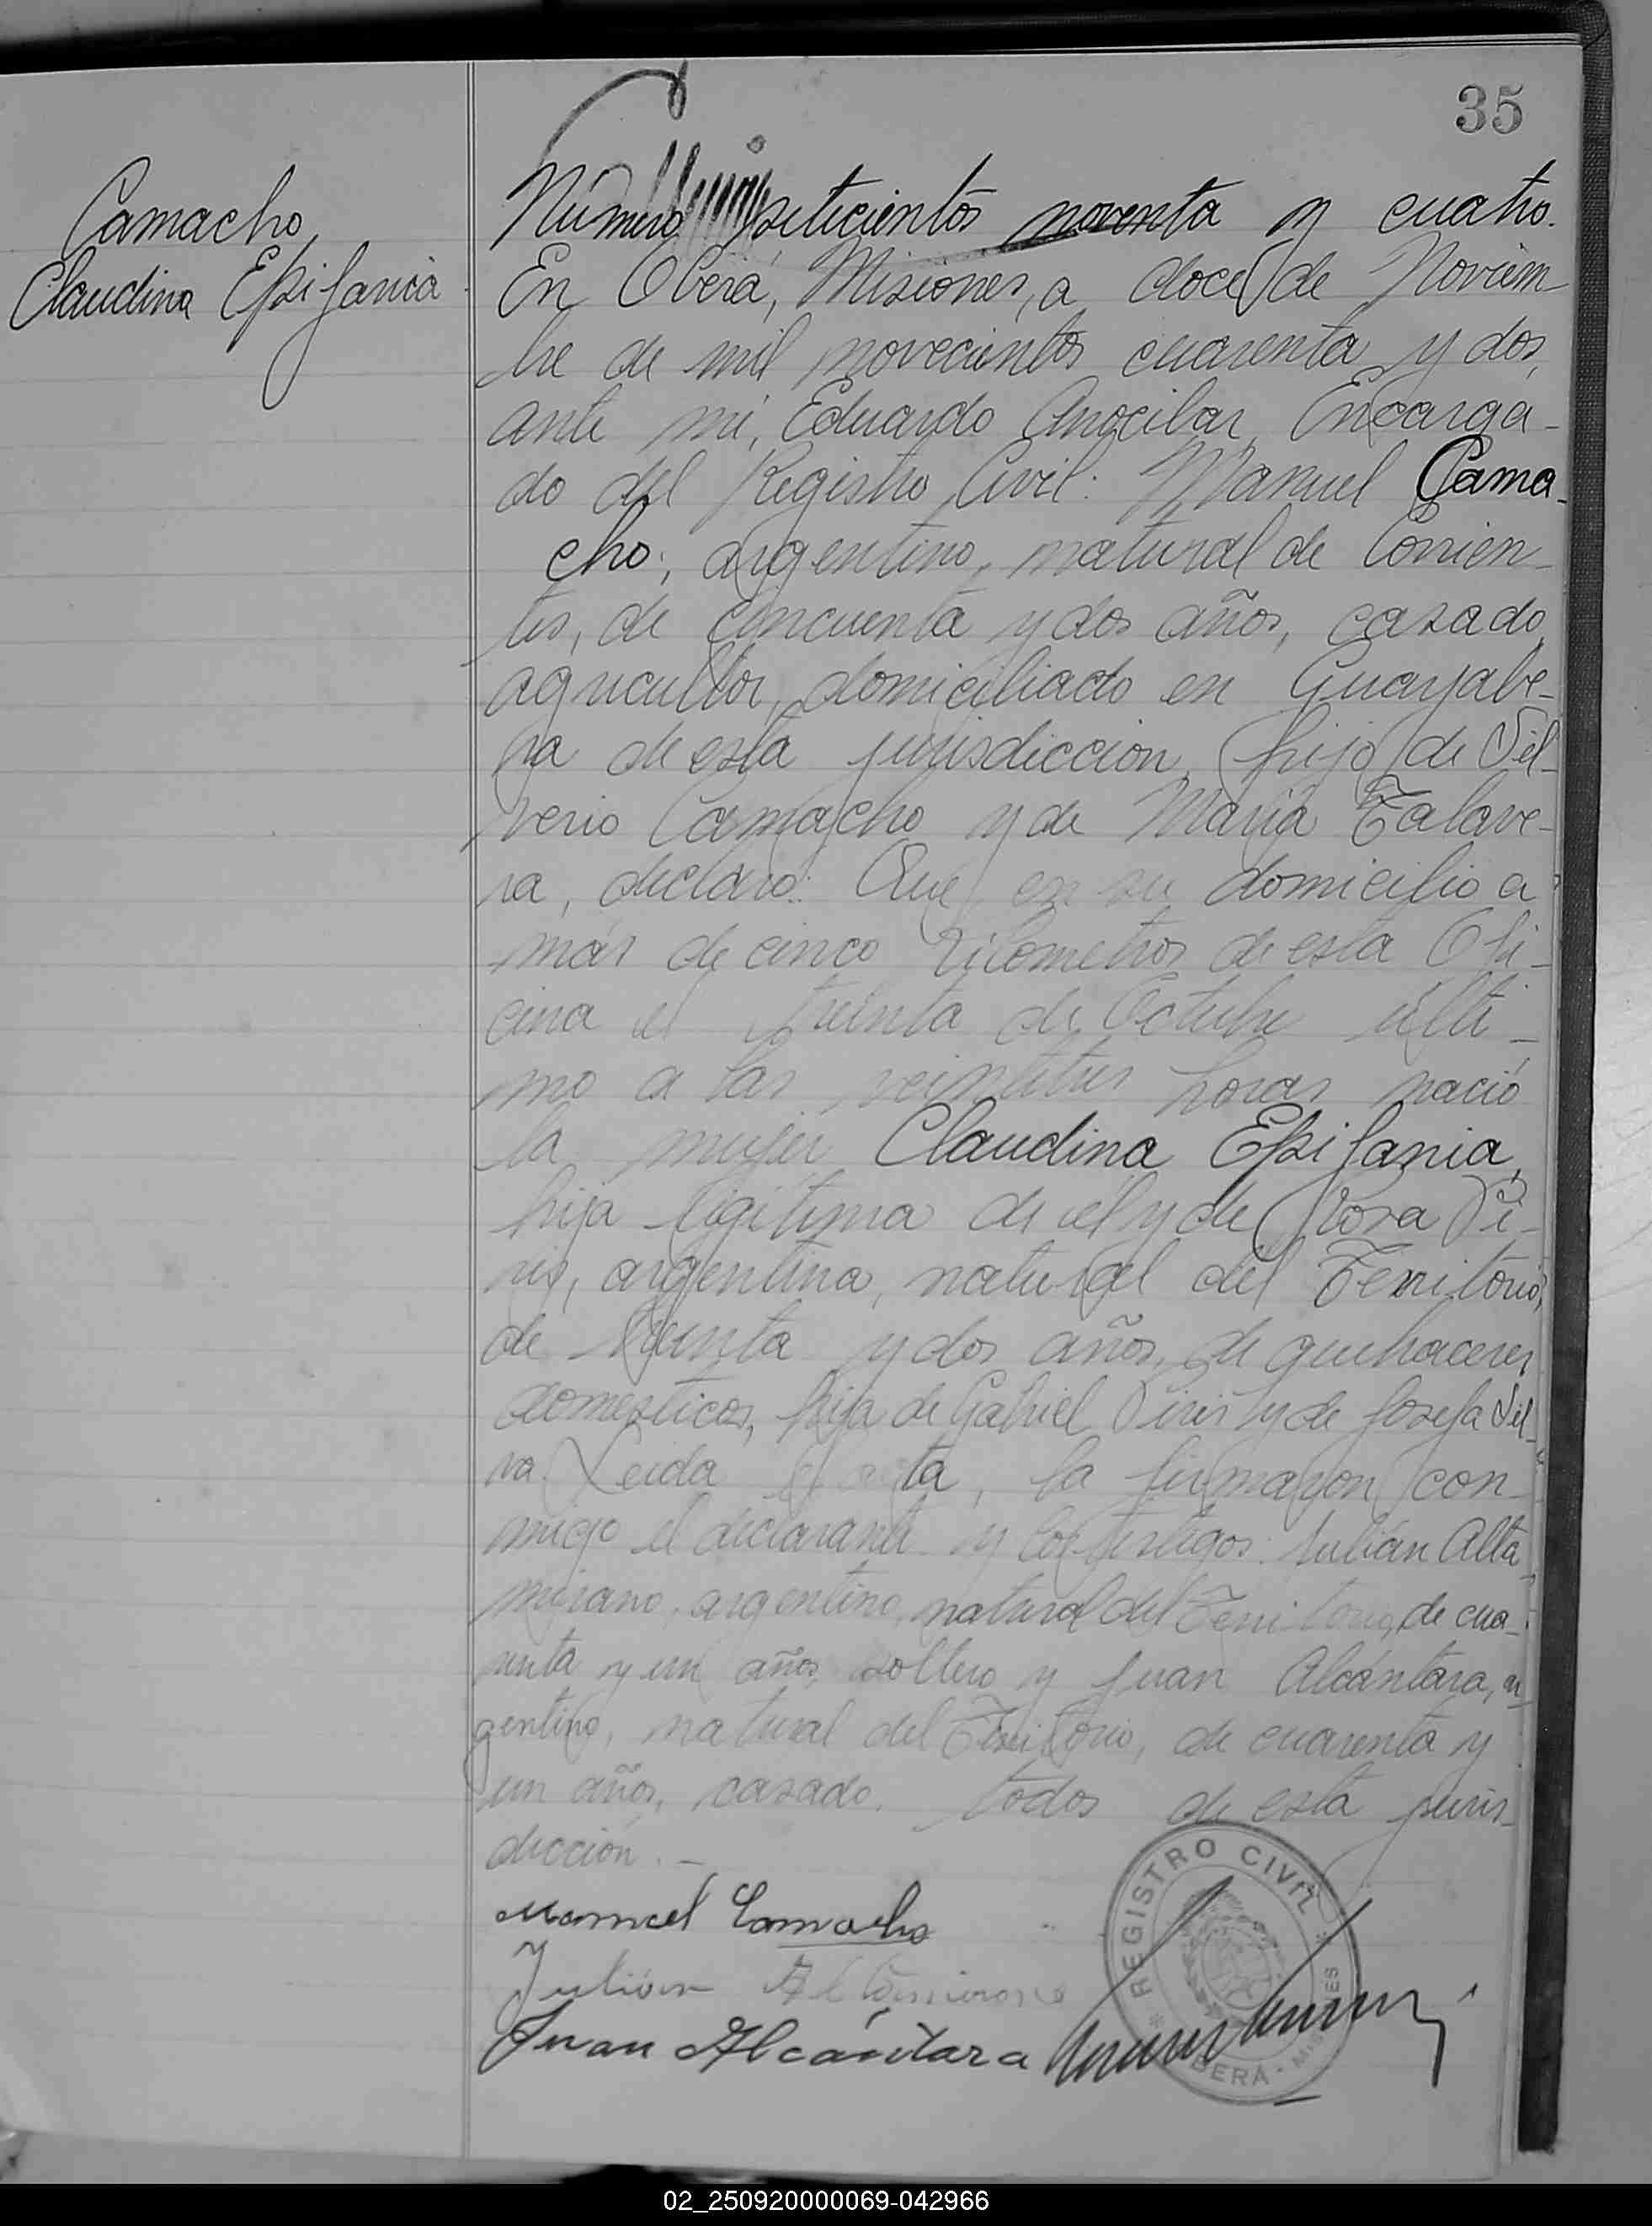 35
Camacho,
Claudina Epifania
Número setecientos noventa y cuatro.
En Oberá, Misiones, a doce de Noviem-
bre de mil novecientos cuarenta y dos,
ante mí, Eduardo Anocibar, Encarga-
do del Registro Civil: Manuel Cama-
cho; argentino, natural de Corrien-
tes, de cincuenta y dos años, casado,
agricultor, domiciliado en Guayabe-
ra de esta jurisdicción, hijo de Sil-
verio Camacho y de María Talave-
ra, declaró: Que en su domicilio a
más de cinco kilometros de esta Ofi-
cina el treinta de Octubre últi-
mo a las veintitres horas nació
la mujer Claudina Epifania,
hija legitima de él y de Rosa Pi-
ris, argentina, natural del Territorio,
de treinta y dos años, de quehaceres
domesticos, hija de Gabriel Piris y de Josefa Sil-
va. Leída el acta, la firmaron con-
migo el declarante y los testigos: Julián Alta-
mirano, argentino, natural del Territorio, de cua-
renta y un años, soltero y Juan Alcántara, ar-
gentino, natural del Territorio, de cuarenta y
un años, casado, todos de esta juris-
dicción.-
Manuel Camacho
Julián Altamirano
Juan Alcántara
REGISTRO CIVIL
OBERÁ - MISIONES
02_250920000069-042966